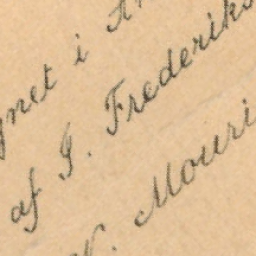 gnet i
af J. Frederiks
N. Mouri